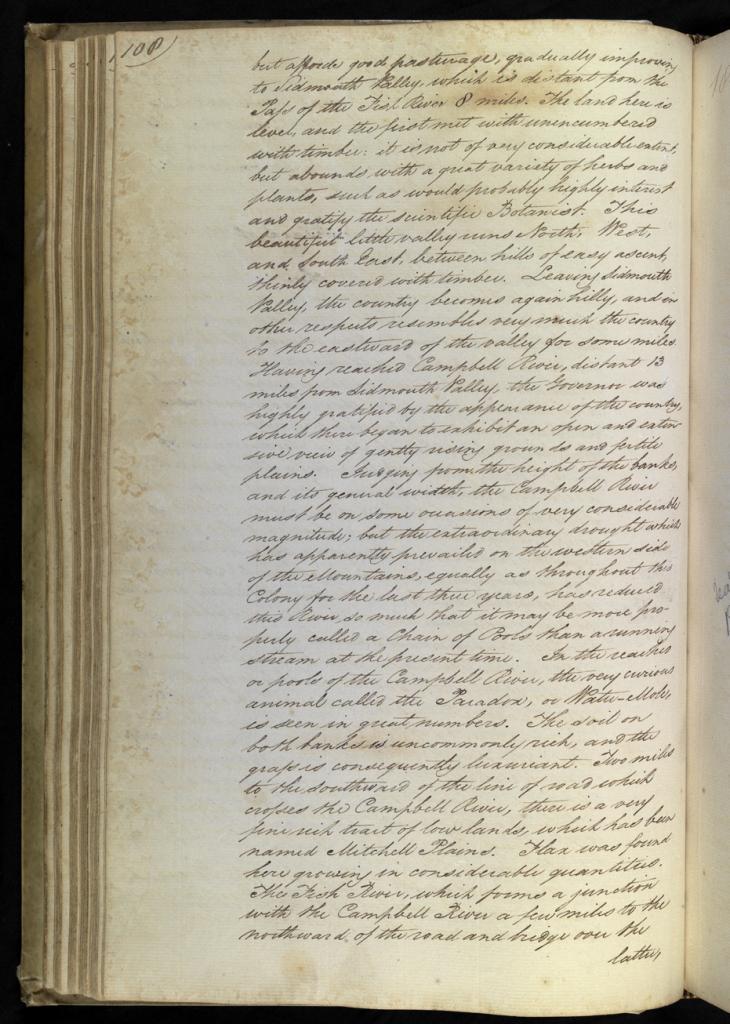 108
but affords good pasturage, gradually improving
to Sidmouth Valley, which is distant from the
Pass of the Fish River 8 miles. The land here is
level, and the first met with unencumbered
with timber: it is not of very considerable extent,
but abounds with a great variety of herbs and
plants, such as would probably highly interest
and gratify the scientific Botanist. This
beautiful little valley runs North, West,
and South East, between hills of easy ascent,
thinly covered with timber. Leaving Sidmouth
Valley, the country becomes again hilly, and in
other respects resembles very much the country
to the eastward of the valley for some miles.
Having reached Campbell River, distant 13
miles from Sidmouth Valley, the Governor was
highly gratified by the appearance of the country,
which there began to exhibit an open and exten
sive view of gently rising grounds and fertile
plains. Judging from the height of the banks,
and its general width, the Campbell River
must be on some occasions of very considerable
magnitude; but the extraordinary drought which
has apparently prevailed on the western side
of the Mountains, equally as throughout this
Colony for the last three years, has reduced
this River so much that it may be more pro-
perly called a Chain of Pools than a running
stream at the present time. In the reaches
or pools of the Campbell River, the very curious
animal called the Paradox, or Water-Mole,
is seen in great numbers. The soil on
both banks is uncommonly rich, and the
grass is consequently luxuriant. Two miles
to the southward of the line of road which
crosses the Campbell River, there is a very
fine rich tract of low lands, which has been
named Mitchell Plains. Flax was found
here growing in considerable quantities.
The Fish River, which forms a junction
with the Campbell River a few miles to the
northward of the road and bridge over the
latter,